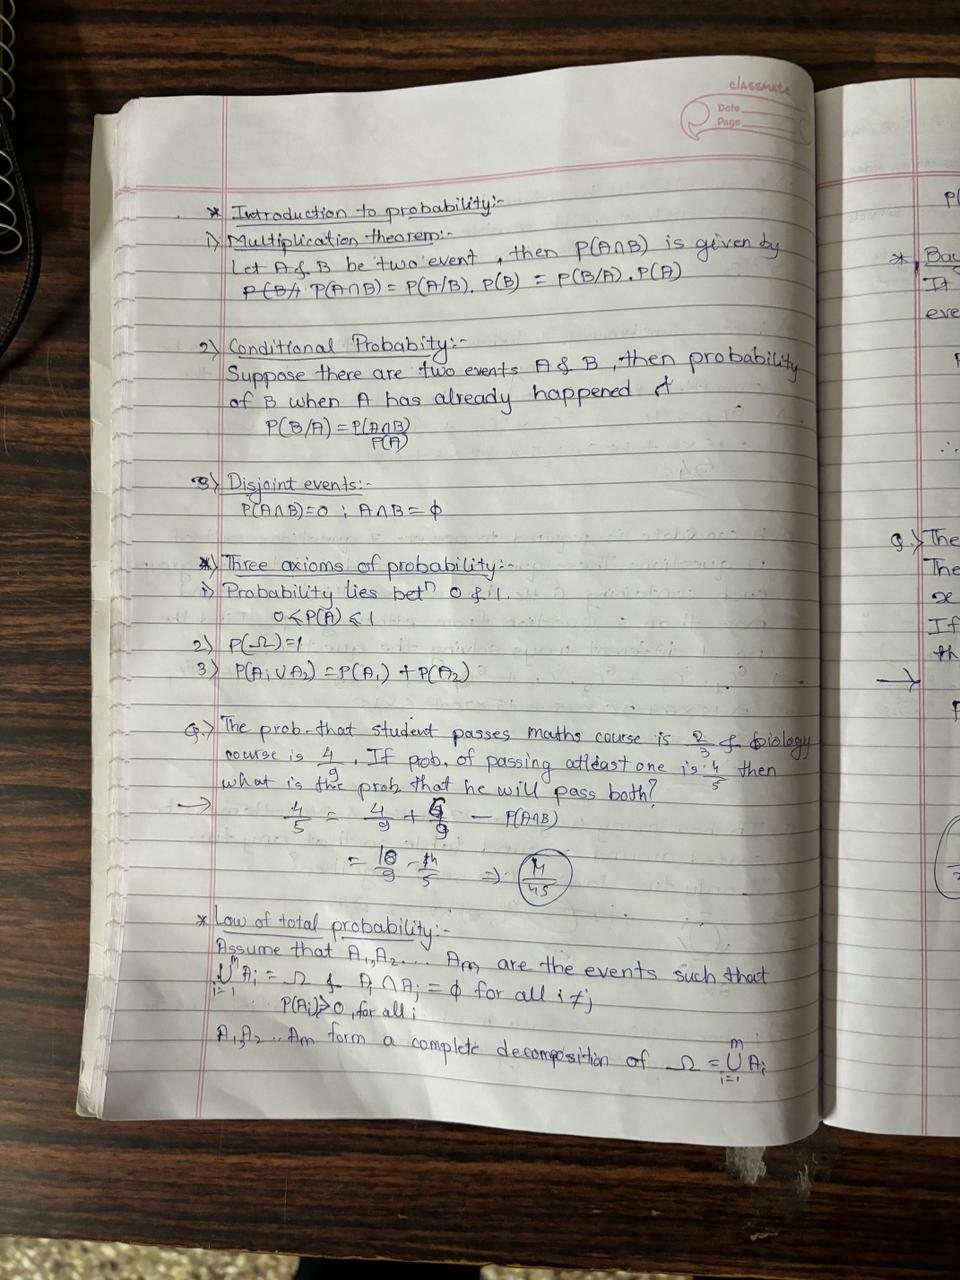 classmate
Date
Page
* Introduction to probability:-
1) Multiplication theorem:-
Let A & B be two event, then P(A∩B) is given by
P(B/ P(A∩B) = P(A/B). P(B) = P(B/A). P(A)
2) Conditional Probabity:-
Suppose there are two events A & B, then probability
of B when A has already happened
P(B/A) = P(A∩B)
P(A)
3) Disjoint events:-
P(A∩B)=0 ; A∩B = ϕ
*) Three axioms of probability:-
1) Probability lies betⁿ 0 & 1.
0 ≤ P(A) ≤ 1
2) P(Ω)=1
3) P(A₁ ∪ A₂) = P(A₁) + P(A₂)
Q.) The prob. that student passes maths course is 2/3 & biology
course is 4/9. If prob. of passing atleast one is 4/5 then
what is the prob that he will pass both?
→ 4/5 = 4/9 + 6/9 - P(A∩B)
= 10/9 - 4/5 ⇒ 14/45
* Law of total probability:-
Assume that A₁, A₂... Am are the events such that
m
∪ Ai = Ω & Ai ∩ Aj = ϕ for all i ≠ j
i=1
P(Ai)>0, for all i
A₁, A₂ .. Am form a complete decomposition of Ω = m ∪ i=1 Ai
P(
* Bay
If
eve
P
∴
Q) The
The
x
If
th
→
P